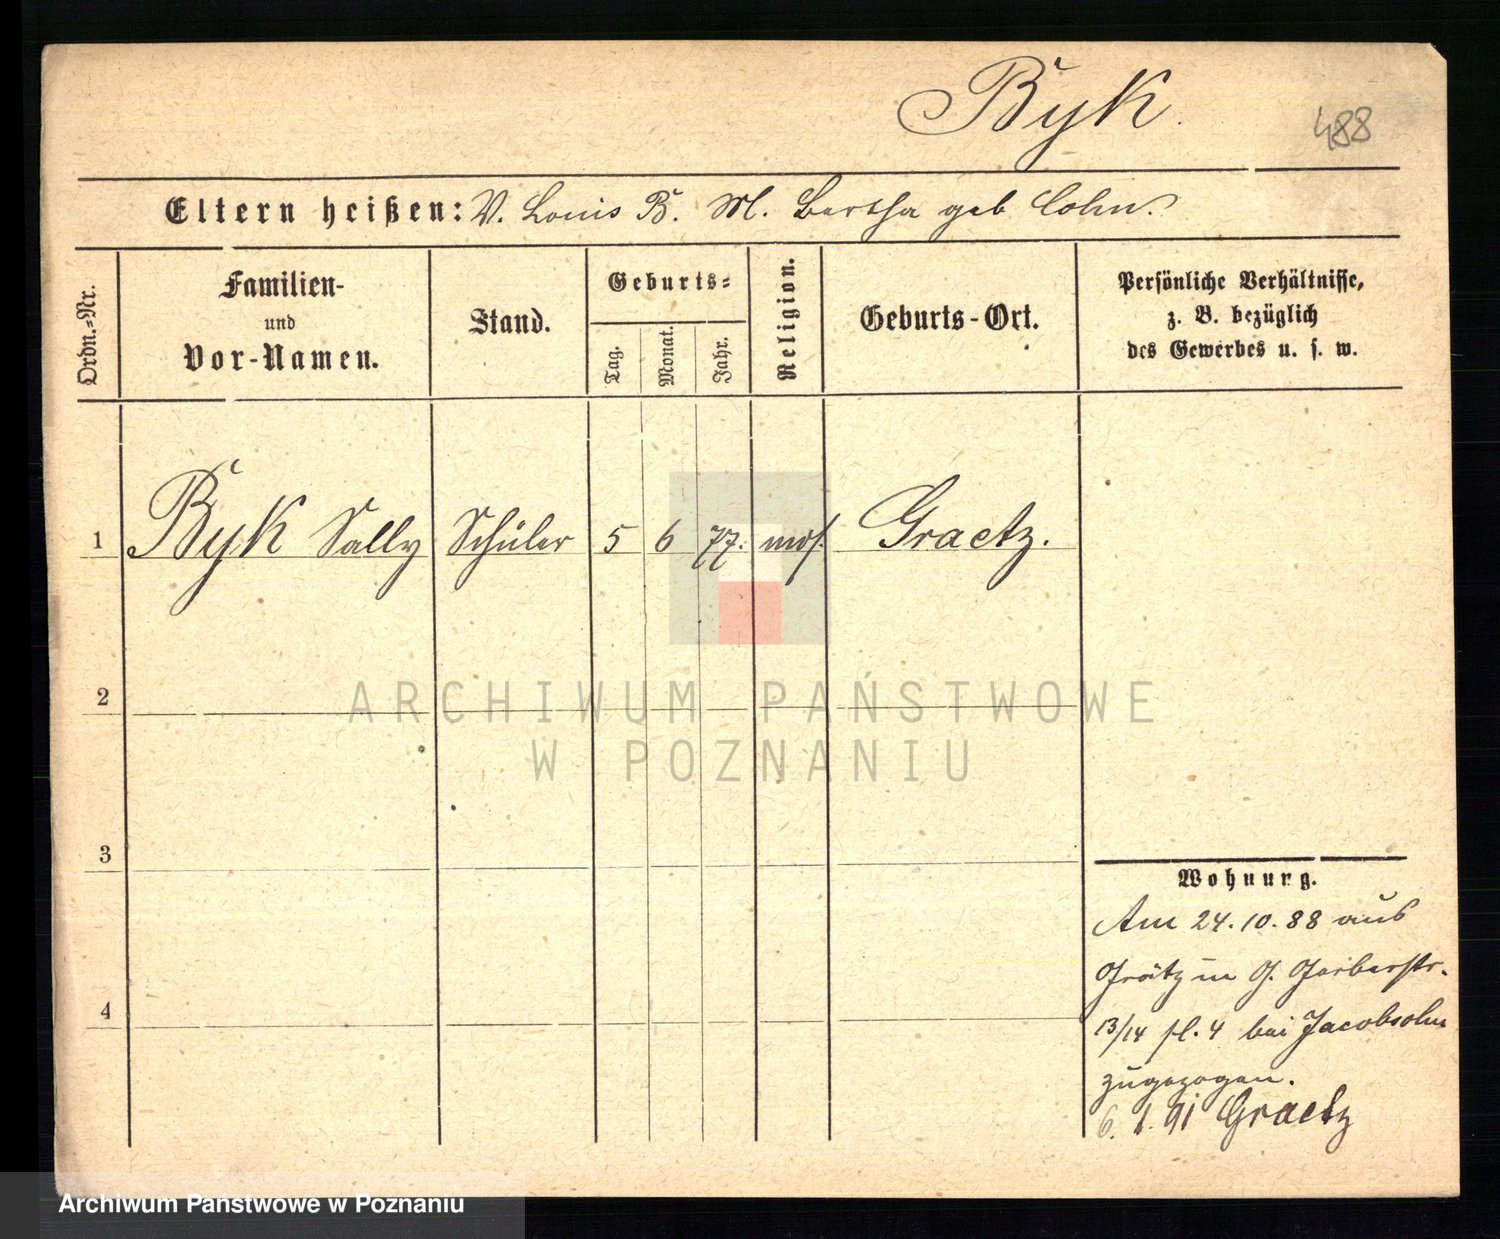 Byk.
488
Eltern heißen: V. Louis B. M. Bertha geb Cohn.
Ordn.=Nr.
Familien-
und
Vor-Namen.
Stand.
Geburts=
Tag.
Monat.
Jahr.
Religion.
Geburts-Ort.
Persönliche Verhältnisse,
z. B. bezüglich
des Gewerbes u. s. w.
1 Byk Sally Schüler 5 6 77. mos. Graetz.
2
3
4
Wohnung.
Am 24.10.88 aus
Grätz in G. Gerberstr.
13/14 pl. 4 bei Jacobsohn
zugezogen.
6. 1. 91 Graetz
ARCHIWUM PAŃSTWOWE
W POZNANIU
Archiwum Państwowe w Poznaniu